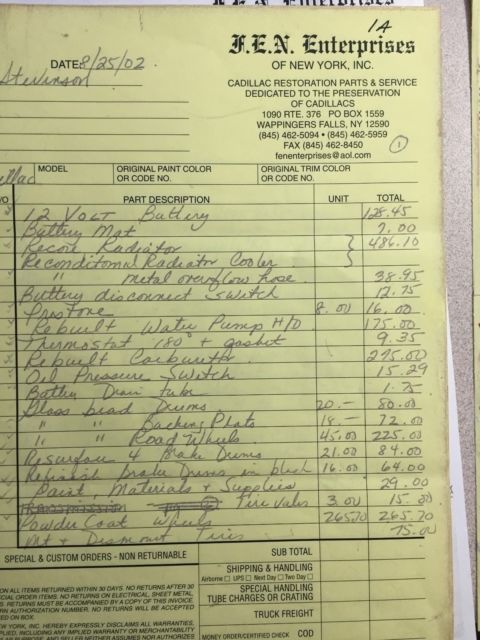 Enterprises
1A
F.E.N. Enterprises
DATE: 8/25/02
OF NEW YORK, INC.
Stevinson
CADILLAC RESTORATION PARTS & SERVICE
DEDICATED TO THE PRESERVATION
OF CADILLACS
1090 RTE. 376 PO BOX 1559
WAPPINGERS FALLS, NY 12590
(845) 462-5094 • (845) 462-5959
FAX (845) 462-8450
fenenterprises@aol.com
1
MODEL ORIGINAL PAINT COLOR OR CODE NO. ORIGINAL TRIM COLOR OR CODE NO.
PART DESCRIPTION UNIT TOTAL
12 Volt Battery 128.45
Battery Mat 9.00
Recore Radiator 486.10
Reconditional Radiator Cooler
" metal overflow hose 38.95
Battery disconnect switch 12.75
Prestone 8.00 16.00
Rebuilt Water Pump H/D 175.00
Thermostat 180° + gasket 9.35
Rebuilt Carburetor 295.00
Oil Pressure Switch 15.29
Battery Drain tube 1.75
Glass bead Drums 20.- 80.00
" " Backing Plats 18.- 72.00
" " Road Wheels 45.00 225.00
Resurface 4 Brake Drums 21.00 84.00
Refinish Brake Drums in black 16.00 64.00
Paint, Materials & Supplies 29.00
Tire Valves 3.00 15.00
Powder Coat Wheels 265.70 265.70
Mt & Dismount Tires 75.00
SPECIAL & CUSTOM ORDERS - NON RETURNABLE SUB TOTAL
SHIPPING & HANDLING
Airborne UPS Next Day Two Day
SPECIAL HANDLING
TUBE CHARGES OR CRATING
TRUCK FREIGHT
MONEY ORDER/CERTIFIED CHECK COD
ON ALL ITEMS RETURNED WITHIN 30 DAYS. NO RETURNS AFTER 30
CIAL ORDER ITEMS. NO RETURNS ON ELECTRICAL, SHEET METAL,
S. RETURNS MUST BE ACCOMPANIED BY A COPY OF THIS INVOICE
RN AUTHORIZATION NUMBER. NO RETURNS WILL BE ACCEPTED
ED ON BOX.
W YORK, INC. HEREBY EXPRESSLY DISCLAIMS ALL WARRANTIES,
PLIED, INCLUDING ANY IMPLIED WARRANTY OR MERCHANTABILITY